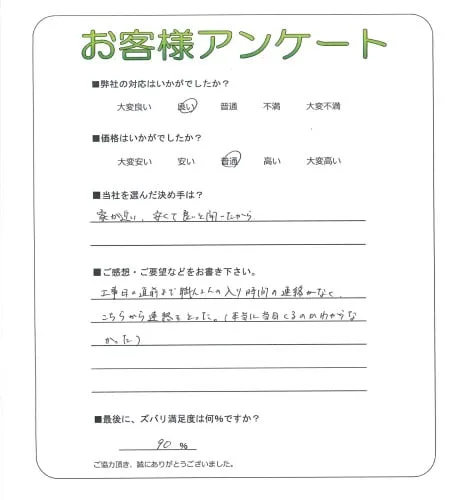 お客様アンケート
■弊社の対応はいかがでしたか？
大変良い 良い 普通 不満 大変不満
■価格はいかがでしたか？
大変安い 安い 普通 高い 大変高い
■当社を選んだ決め手は？
家が近い、安くて良いと聞いたから
■ご感想・ご要望などをお書き下さい。
工事日の直前まで職人さんの入り時間の連絡がなく、
こちらから連絡をとった。(本当に当日くるのかわからな
かった)
■最後に、ズバリ満足度は何％ですか？
90 %
ご協力頂き、誠にありがとうございました。